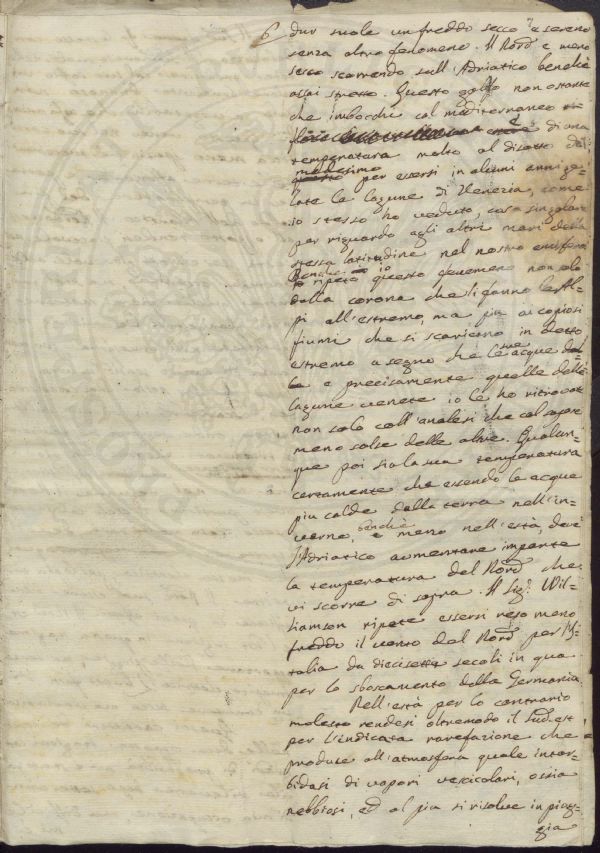 6 dur suole un freddo secco, e sereno
senza altro fenomeno. Il Nord è meno
secco scorrendo sull'Adriatico benchè
assai stretto. Questo golfo non ostante
che imbocchi col mediterraneo
è di una
temperatura molto al disotto del
medesimo
per essersi in alcuni anni ge=
late le lagune di Venezia, come
io stesso ho veduto, cosa singolare
per riguardo agli altri mari della
stessa latitudine nel nostro emisfero
Benchè io
ripeta questo fenomeno non solo
dalla corona che li fanno le Al=
pi all'estremo, ma più ai copiosi
fiumi che si scaricano in detto
estremo a segno che le sue acque
e precisamente quelle delle
lagune venete io le ho ritrovate
non solo coll'analisi che col sapore
meno salse delle altre. Qualun=
que poi sia la sua temperatura
certamente che essendo le acque
più calde della terra nell'in=
verno, benchè meno nell'està, deve
l'Adriatico aumentare in parte
la temperatura del Nord che
vi scorre di sopra. Il Sig.r Wil=
liamson ripete essersi reso meno
freddo il vento del Nord per l'I=
talia da diecisette secoli in qua
per lo sboscamento della Germania
Nell'està per lo contrario
molesto rendesi oltremodo il Sud-est
per l'indicata rarefazione che
produce all'atmosfera quale intor=
bidasi di vapori vescicolari, ossia
nebbiosi, ed al più si risolve in piog=
gia